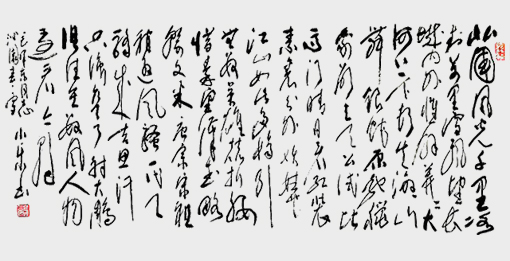 北國风光千里冰
封万里雪飘望长
城内外惟余莽莽大
河上下顿失滔滔山
舞银蛇原驰蜡
象欲与天公试比
高须晴日看红装
素裹分外妖娆
江山如此多娇引
无数英雄竞折腰
惜秦皇汉武略
输文采唐宗宋祖
稍逊风骚一代天
骄成吉思汗
只识弯弓射大雕
俱往矣数风流人物
还看今朝
毛泽东同志
沁园春雪 小 书